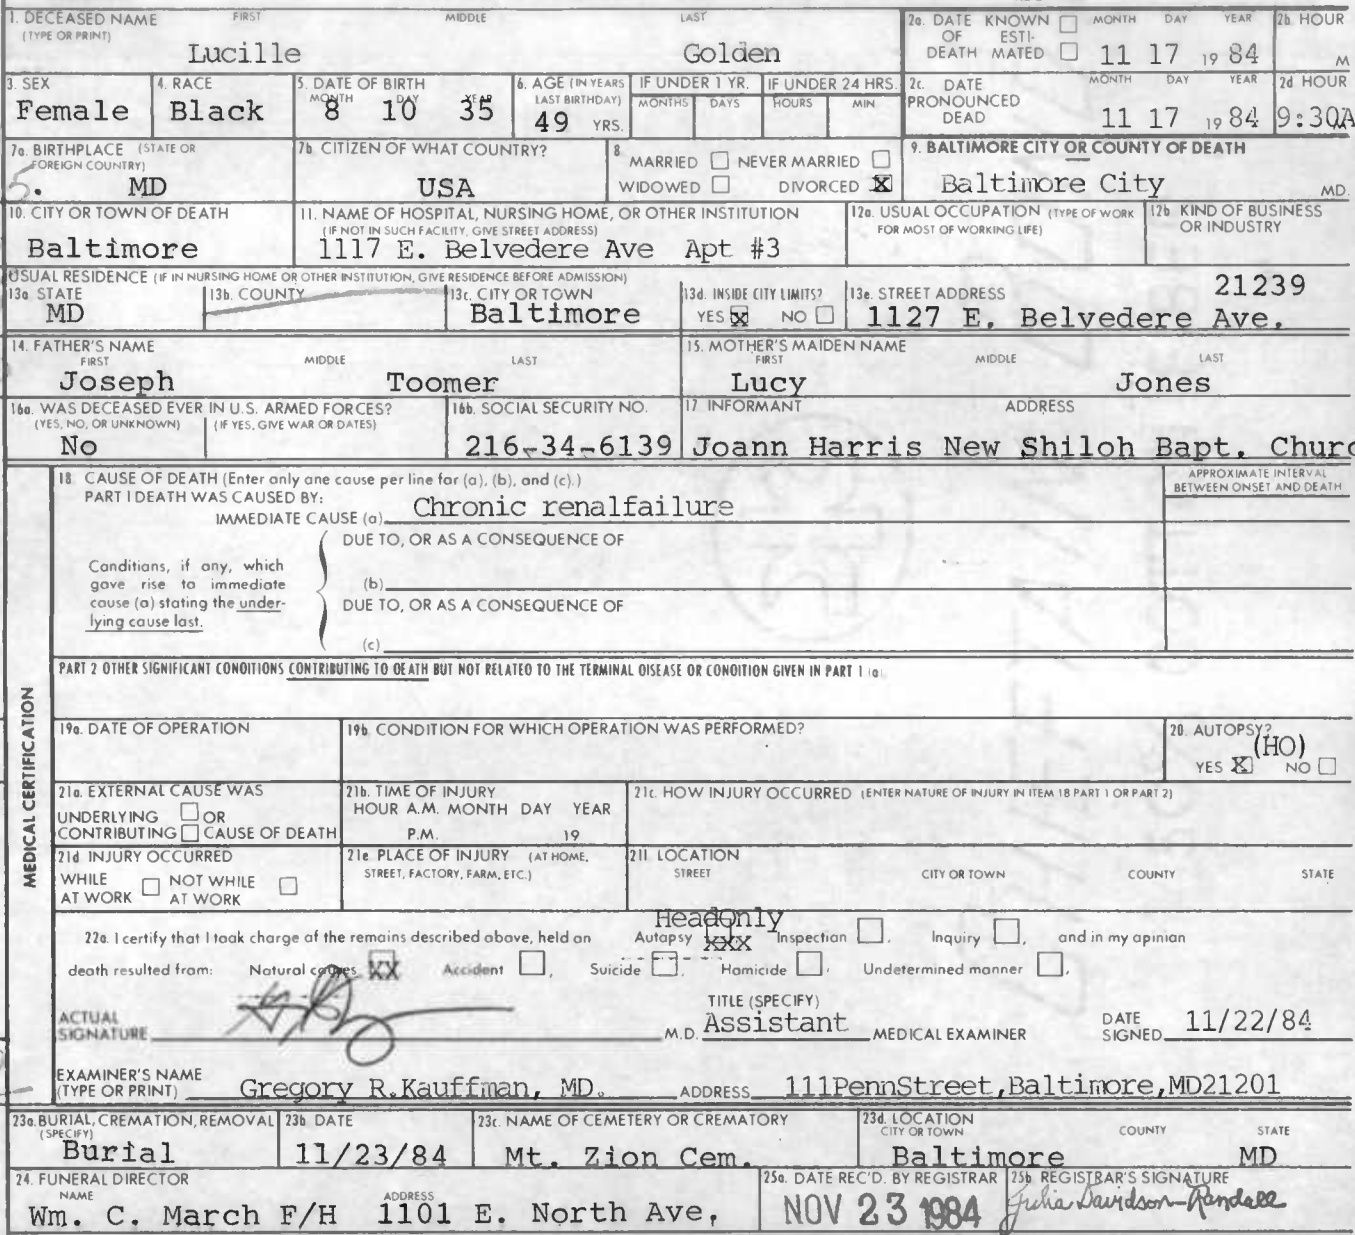 1. DECEASED NAME FIRST MIDDLE LAST
(TYPE OR PRINT)
Lucille Golden
2a. DATE KNOWN
OF ESTI-
DEATH MATED
MONTH DAY YEAR
11 17 1984
2b. HOUR
M
3. SEX
Female
4. RACE
Black
5. DATE OF BIRTH
MONTH DAY YEAR
8 10 35
6. AGE (IN YEARS
LAST BIRTHDAY)
49 YRS.
IF UNDER 1 YR.
MONTHS DAYS
IF UNDER 24 HRS.
HOURS MIN.
2c. DATE
PRONOUNCED
DEAD
MONTH DAY YEAR
11 17 1984
2d HOUR
9:30A
7a. BIRTHPLACE (STATE OR
FOREIGN COUNTRY)
MD
7b. CITIZEN OF WHAT COUNTRY?
USA
8
MARRIED NEVER MARRIED
WIDOWED DIVORCED X
9. BALTIMORE CITY OR COUNTY OF DEATH
Baltimore City MD.
10. CITY OR TOWN OF DEATH
Baltimore
11. NAME OF HOSPITAL, NURSING HOME, OR OTHER INSTITUTION
(IF NOT IN SUCH FACILITY, GIVE STREET ADDRESS)
1117 E. Belvedere Ave Apt #3
12a. USUAL OCCUPATION (TYPE OF WORK
FOR MOST OF WORKING LIFE)
12b. KIND OF BUSINESS
OR INDUSTRY
USUAL RESIDENCE (IF IN NURSING HOME OR OTHER INSTITUTION, GIVE RESIDENCE BEFORE ADMISSION)
13a. STATE
MD
13b. COUNTY
13c. CITY OR TOWN
Baltimore
13d. INSIDE CITY LIMITS?
YES X NO
13e. STREET ADDRESS 21239
1127 E. Belvedere Ave.
14. FATHER'S NAME
FIRST MIDDLE LAST
Joseph Toomer
15. MOTHER'S MAIDEN NAME
FIRST MIDDLE LAST
Lucy Jones
16a. WAS DECEASED EVER IN U.S. ARMED FORCES?
(YES, NO, OR UNKNOWN) (IF YES, GIVE WAR OR DATES)
No
16b. SOCIAL SECURITY NO.
216-34-6139
17 INFORMANT ADDRESS
Joann Harris New Shiloh Bapt. Churc
MEDICAL CERTIFICATION
18 CAUSE OF DEATH (Enter only one cause per line for (a), (b), and (c).)
PART I DEATH WAS CAUSED BY:
IMMEDIATE CAUSE (a) Chronic renalfailure
APPROXIMATE INTERVAL
BETWEEN ONSET AND DEATH
DUE TO, OR AS A CONSEQUENCE OF
Conditions, if any, which
gave rise to immediate
cause (a) stating the under-
lying cause last.
(b)
DUE TO, OR AS A CONSEQUENCE OF
(c)
PART 2 OTHER SIGNIFICANT CONDITIONS CONTRIBUTING TO DEATH BUT NOT RELATED TO THE TERMINAL DISEASE OR CONDITION GIVEN IN PART 1 (a)
19a. DATE OF OPERATION
19b. CONDITION FOR WHICH OPERATION WAS PERFORMED?
20. AUTOPSY?
(HO)
YES X NO
21a. EXTERNAL CAUSE WAS
UNDERLYING OR
CONTRIBUTING CAUSE OF DEATH
21b. TIME OF INJURY
HOUR A.M. MONTH DAY YEAR
P.M. 19
21c. HOW INJURY OCCURRED (ENTER NATURE OF INJURY IN ITEM 18 PART 1 OR PART 2)
21d INJURY OCCURRED
WHILE NOT WHILE
AT WORK AT WORK
21e PLACE OF INJURY (AT HOME,
STREET, FACTORY, FARM, ETC.)
21f. LOCATION
STREET CITY OR TOWN COUNTY STATE
HeadOnly
22a. I certify that I took charge of the remains described above, held an Autopsy XXX Inspection , Inquiry , and in my opinion
death resulted from: Natural causes XX Accident , Suicide , Homicide , Undetermined manner ,
ACTUAL
SIGNATURE M.D.
TITLE (SPECIFY)
Assistant MEDICAL EXAMINER
DATE
SIGNED 11/22/84
EXAMINER'S NAME
(TYPE OR PRINT) Gregory R.Kauffman, MD. ADDRESS 111PennStreet,Baltimore,MD21201
23a. BURIAL, CREMATION, REMOVAL
(SPECIFY)
Burial
23b. DATE
11/23/84
23c. NAME OF CEMETERY OR CREMATORY
Mt. Zion Cem.
23d. LOCATION
CITY OR TOWN COUNTY STATE
Baltimore MD
24. FUNERAL DIRECTOR
NAME ADDRESS
Wm. C. March F/H 1101 E. North Ave,
25a. DATE REC'D. BY REGISTRAR
NOV 23 1984
25b. REGISTRAR'S SIGNATURE
Julia Davidson-Randall